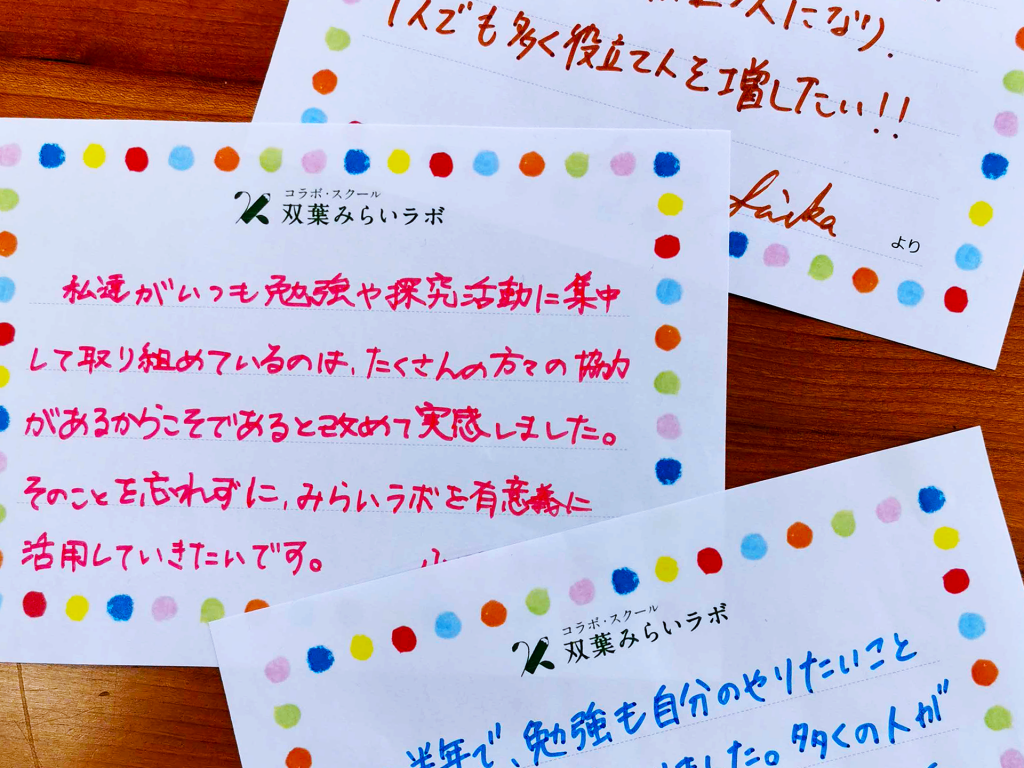 人になり、
1人でも多く役立て人を増したい!!
より
コラボ・スクール
双葉みらいラボ
私達がいつも勉強や探究活動に集中
して取り組めているのは、たくさんの方々の協力
があるからこそであると改めて実感しました。
そのことを忘れずに、みらいラボを有意義に
活用していきたいです。
コラボ・スクール
双葉みらいラボ
半年で、勉強も自分のやりたいこと
した。多くの人が